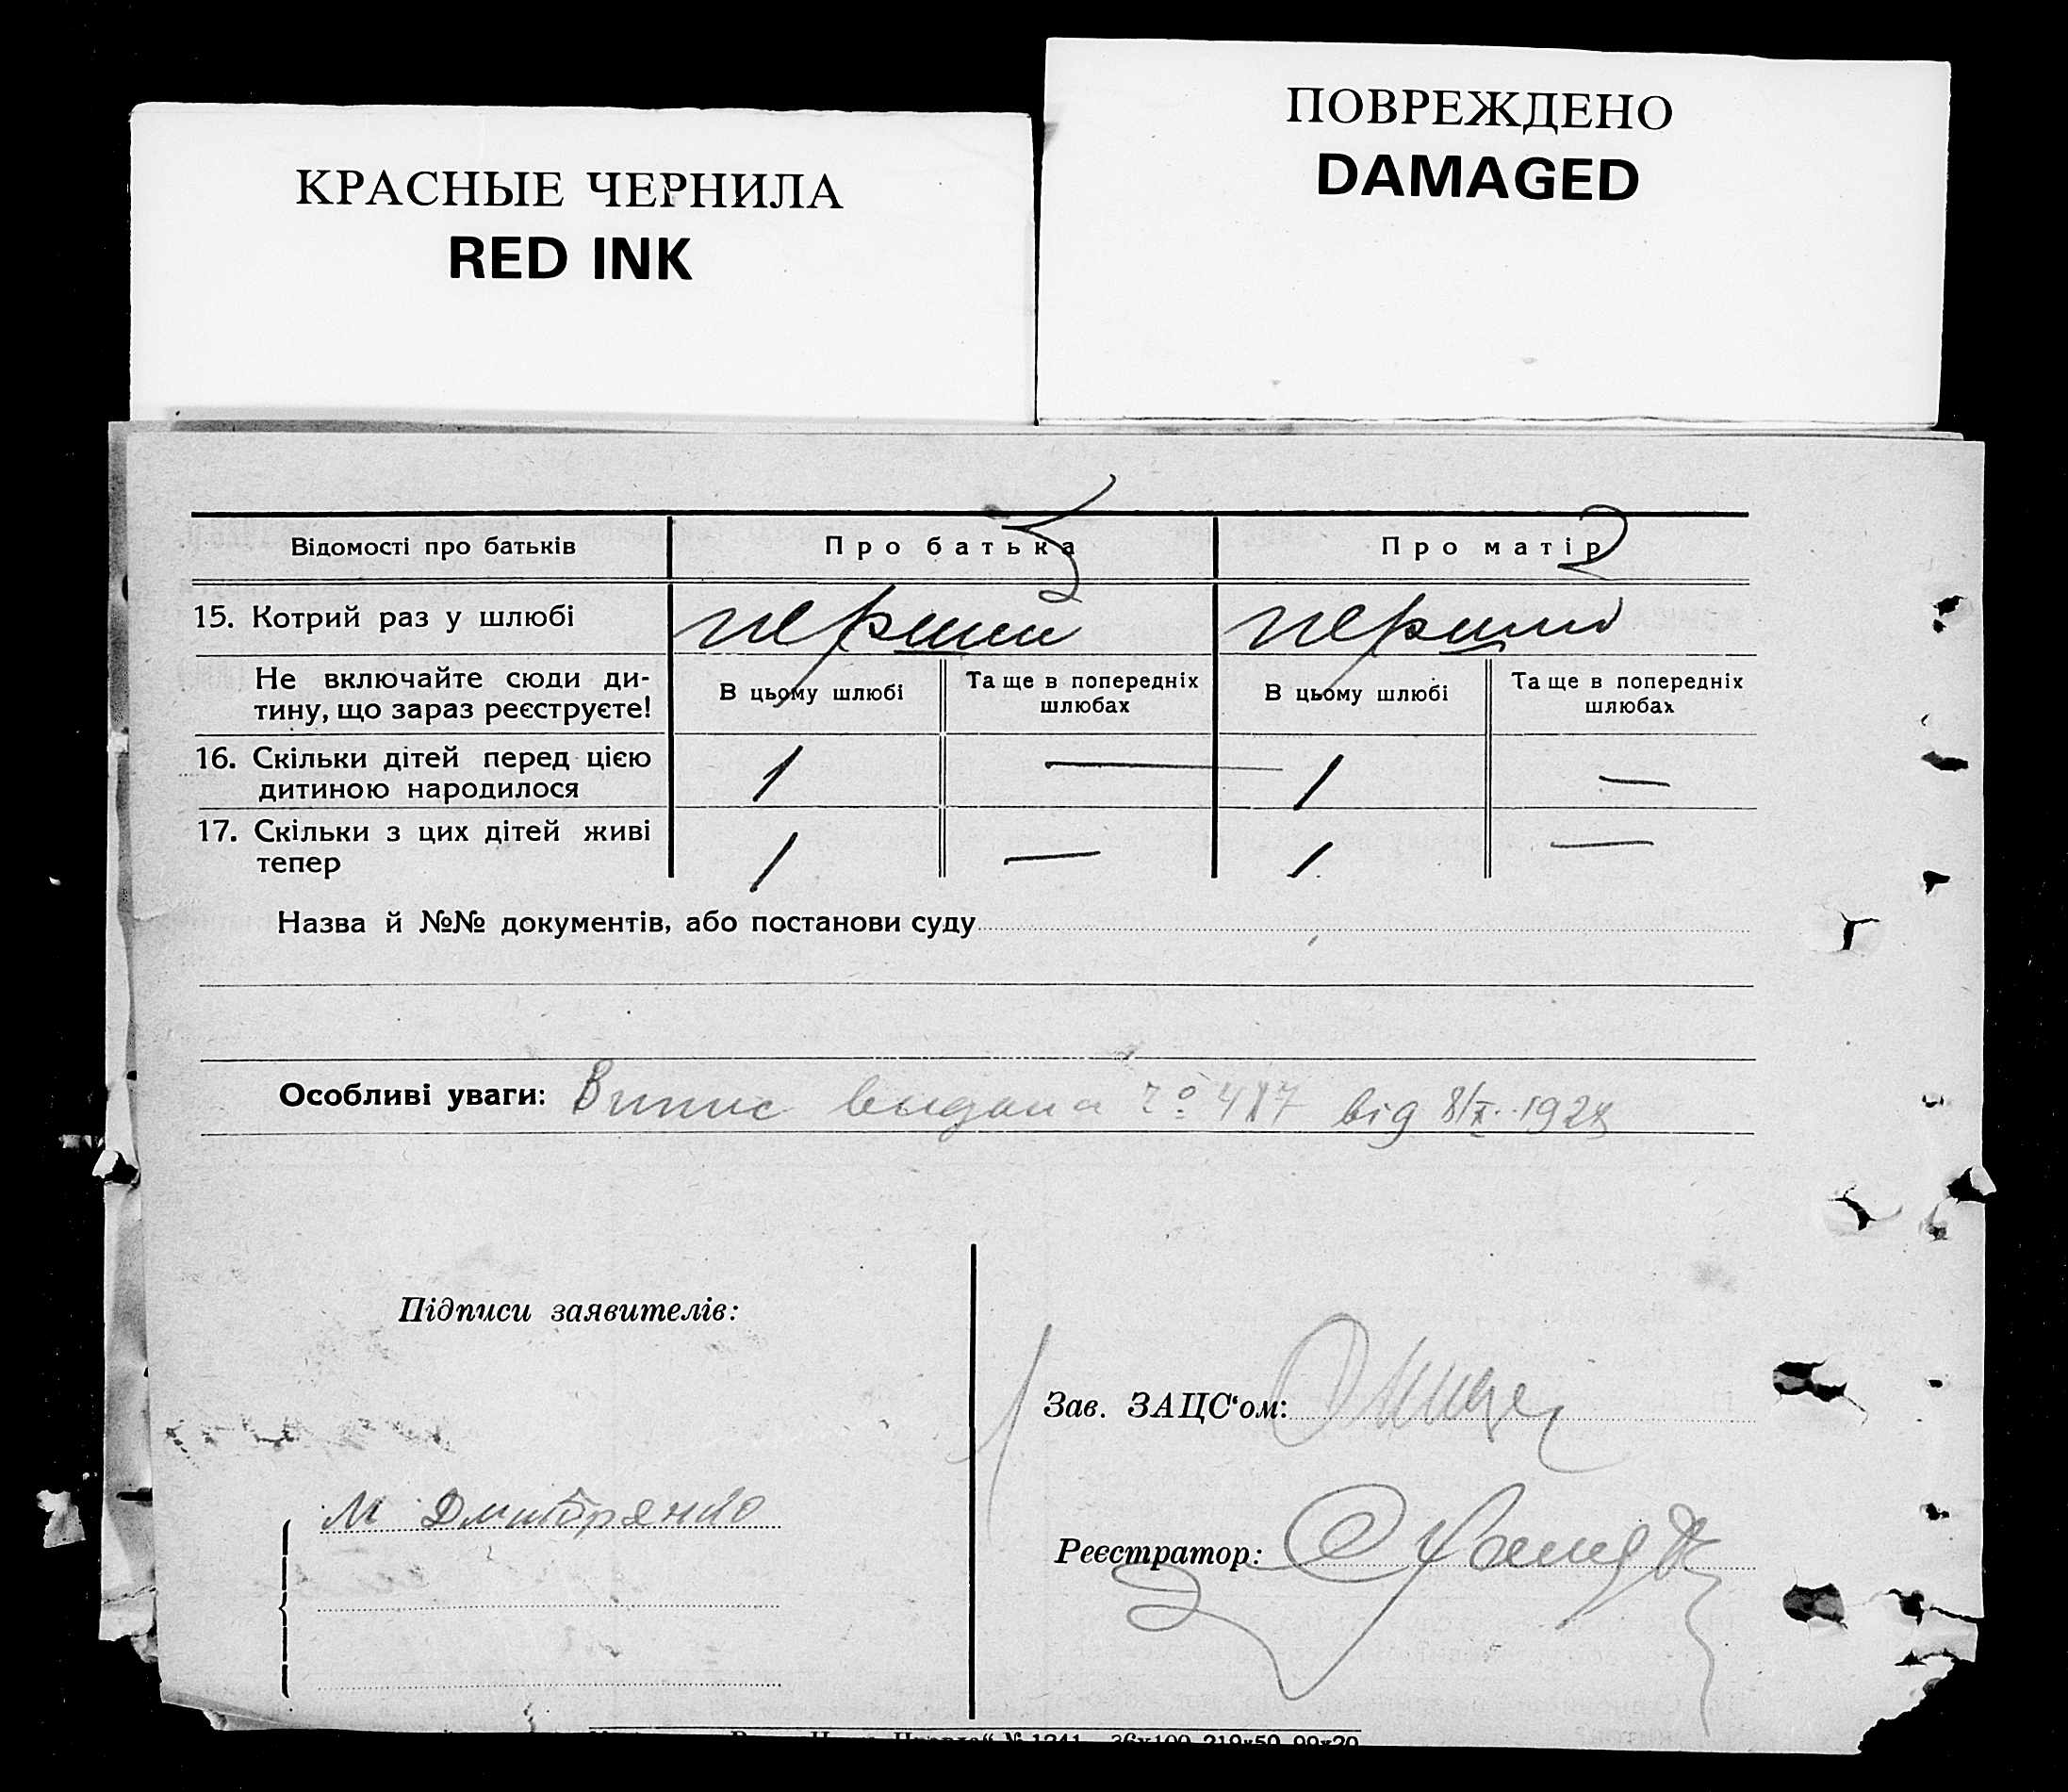 КРАСНЫЕ ЧЕРНИЛА
RED INK
ПОВРЕЖДЕНО
DAMAGED
Відомості про батьків Про батька Про матір
15. Котрий раз у шлюбі перший перший
Не включайте сюди ди-
тину, що зараз реєструєте!
В цьому шлюбі
Та ще в попередніх
шлюбах
В цьому шлюбі
Та ще в попередніх
шлюбах
16. Скільки дітей перед цією
дитиною народилося
1 — 1 —
17. Скільки з цих дітей живі
тепер
1 — 1 —
Назва й №№ документів, або постанови суду
Особливі уваги: Випис видана від
Підписи заявителів:
М Дмитренко
Зав. ЗАЦС'ом:
Реєстратор:
№ 1241